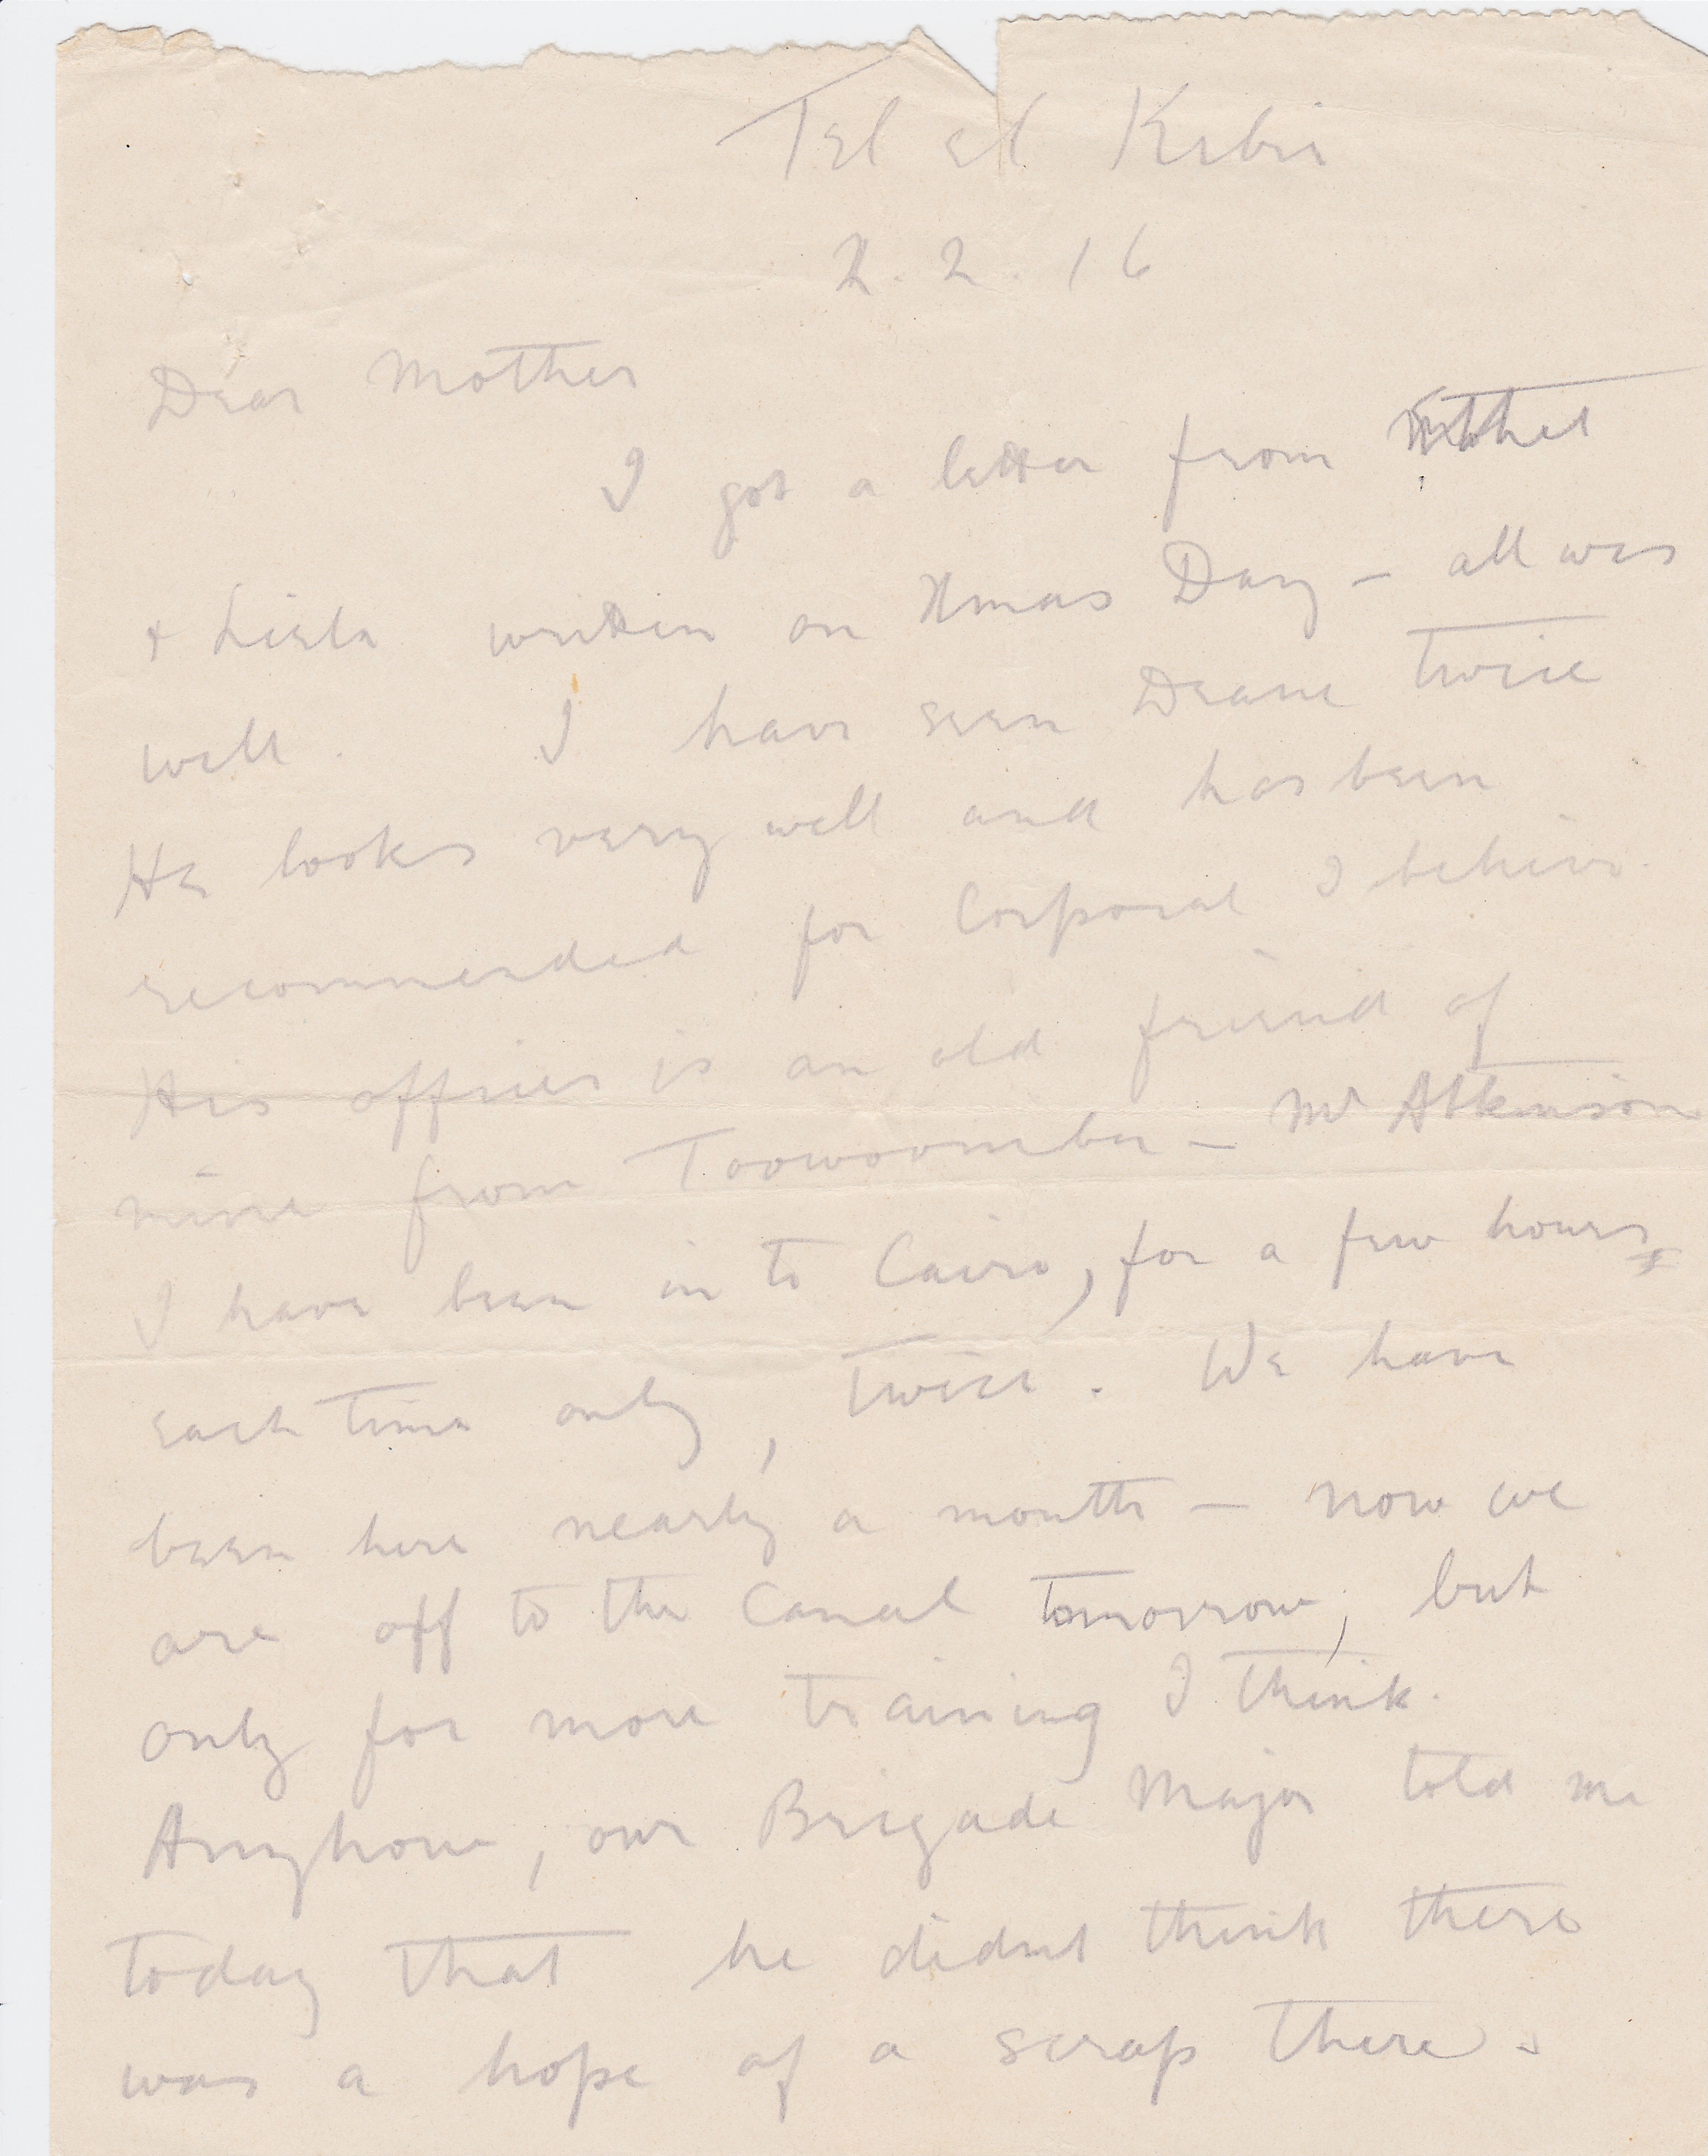 Tel el Kebir
2.2.16
Dear Mother
I got a letter from Ethel
& Liela written on Xmas Day – all was
well. I have seen Deane twice
He looks very well and has been
recommended for Corporal I believe.
His officer is an old friend of
mine from Toowoomba – Mr Atkinson
I have been in to Cairo, for a few hours
each time only, twice. We have
been here nearly a month – now we
are off to the Canal tomorrow, but
only for more training I think.
Anyhow, our Brigade Major told me
today that he didnt think there
was a hope of a scrap there.